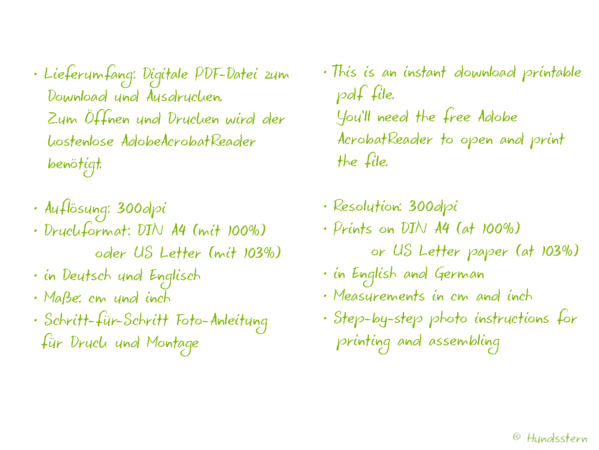 • Lieferumfang: Digitale PDF-Datei zum
Download und Ausdrucken.
Zum Öffnen und Drucken wird der
kostenlose AdobeAcrobatReader
benötigt.
• Auflösung: 300dpi
• Druckformat: DIN A4 (mit 100%)
oder US Letter (mit 103%)
• in Deutsch und Englisch
• Maße: cm und inch
• Schritt-für-Schritt Foto-Anleitung
für Druck und Montage
• This is an instant download printable
pdf file.
You'll need the free Adobe
AcrobatReader to open and print
the file.
• Resolution: 300dpi
• Prints on DIN A4 (at 100%)
or US Letter paper (at 103%)
• in English and German
• Measurements in cm and inch
• Step-by-step photo instructions for
printing and assembling
© Hundsstern